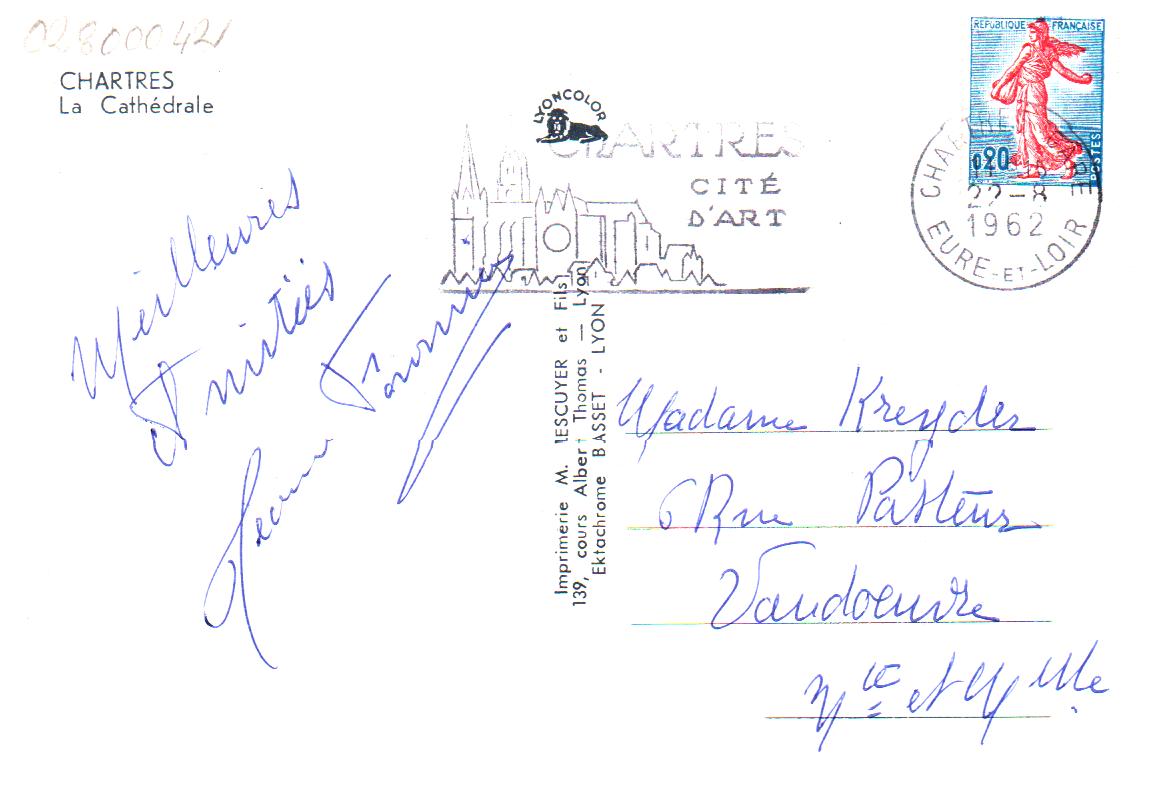 02800042
CHARTRES
La Cathédrale
LYONCOLOR
CHARTRES
CITÉ
D'ART
REPUBLIQUE FRANÇAISE
0,20
POSTES
CHARTRES
22-8
1962
EURE-ET-LOIR
Meilleures
Amitiés
Imprimerie M. LESCUYER et Fils
139, cours Albert Thomas — Lyon
Ektachrome BASSET - LYON -
Madame Kreyder
6 Rue Pasteur
Vandoeuvre
Mthe et Mlle